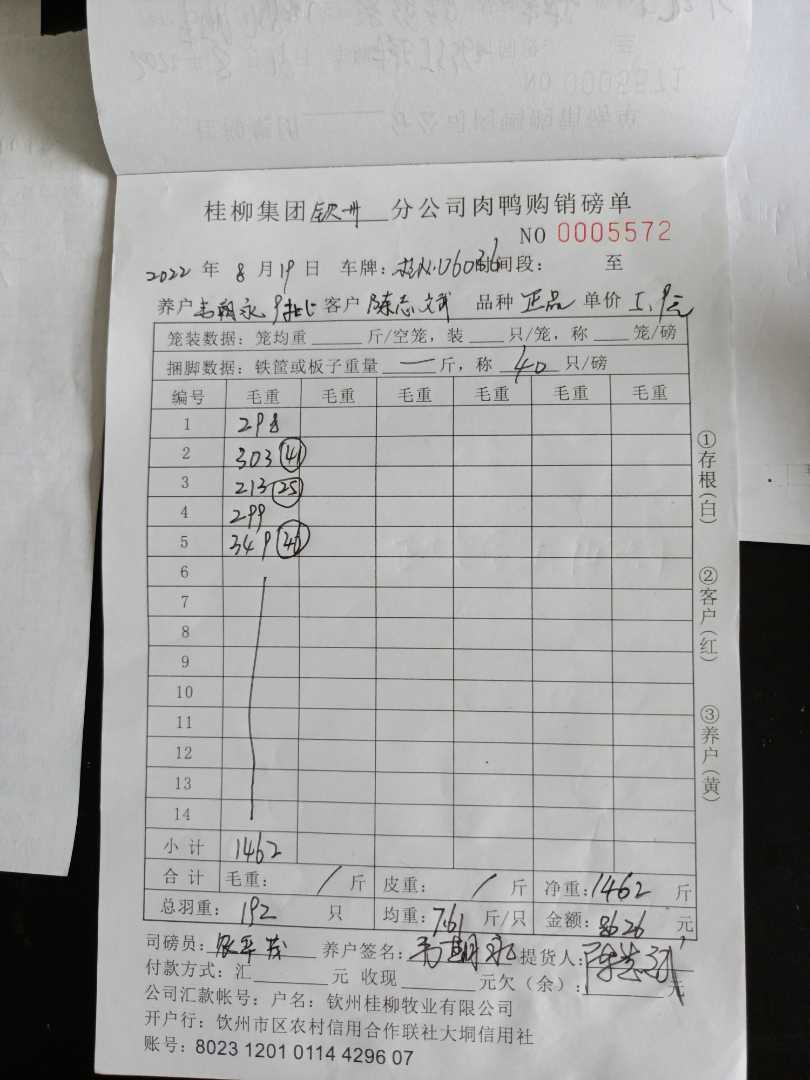 桂柳集团 钦州 分公司肉鸭购销磅单
NO 0005572
2022 年 8 月 19 日 车牌: 时间段: 至
养户 永 9批 客户 陈志 品种 正品 单价 5.9元
笼装数据: 笼均重 斤/空笼, 装 只/笼, 称 笼/磅
捆脚数据: 铁筐或板子重量 — 斤, 称 40 只/磅
编号 毛重 毛重 毛重 毛重 毛重 毛重
1 298
2 303 41
3 213 25
4 299
5 349 46
6
7
8
9
10
11
12
13
14
小计 1462
合计 毛重: / 斤 皮重: / 斤 净重: 1462 斤
总羽重: 192 只 均重: 7.61 斤/只 金额: 8626 元
司磅员: 养户签名: 提货人:
付款方式: 汇 元 收现 元欠(余): 元
公司汇款帐号: 户名: 钦州桂柳牧业有限公司
开户行: 钦州市区农村信用合作联社大垌信用社
账号: 8023 1201 0114 4296 07
①存根(白)
②客户(红)
③养户(黄)